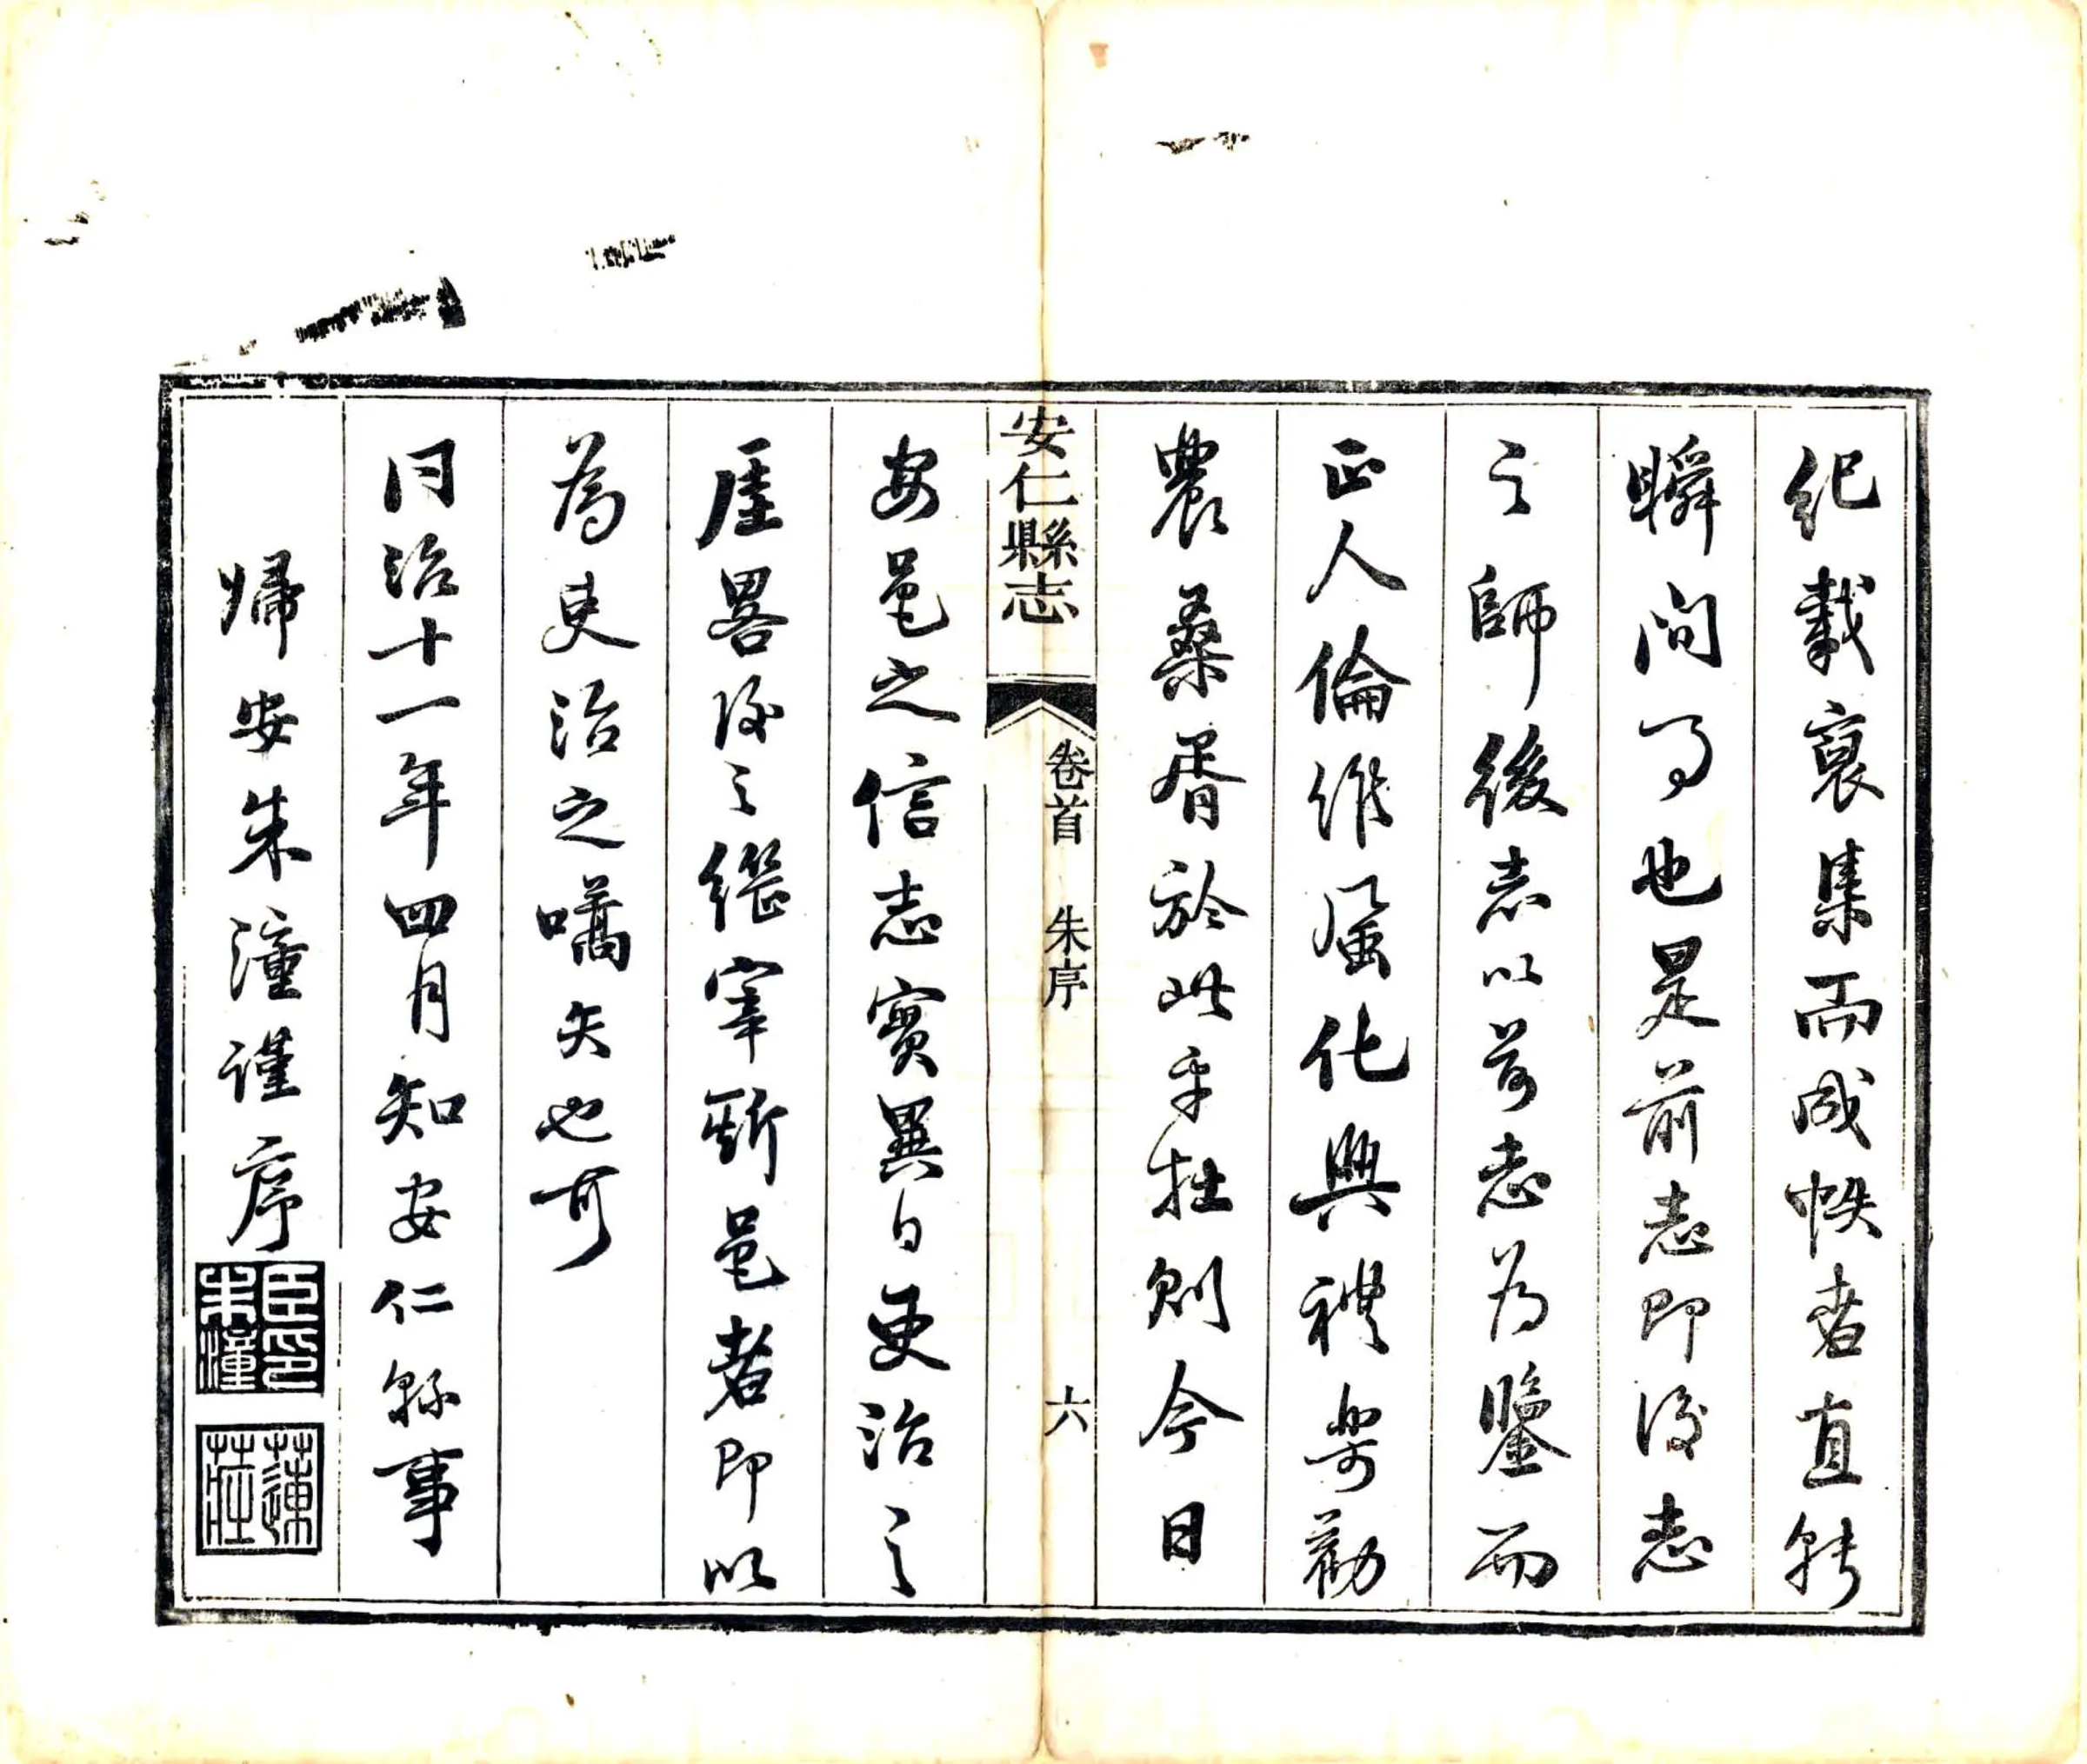 紀載裒集而成帙者直轉
瞬間事也是前志即後志
之師後志以前志為鑒而
正人倫維風化興禮樂勸
農桑胥於此乎在則今日
安仁縣志
卷首 朱序 六
安邑之信志實異日吏治之
厓畧後之繼宰斯邑者即以
為吏治之嚆矢也可
同治十一年四月知安仁縣事
歸安朱潼謹序
臣印朱潼
蓮莊